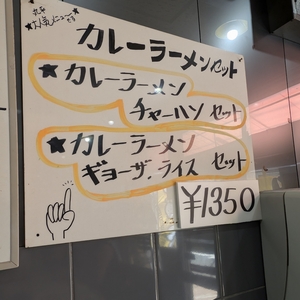 人気メニューです
カレーラーメンセット
★カレーラーメン
チャーハン セット
★カレーラーメン
ギョーザ.ライス セット
¥1350